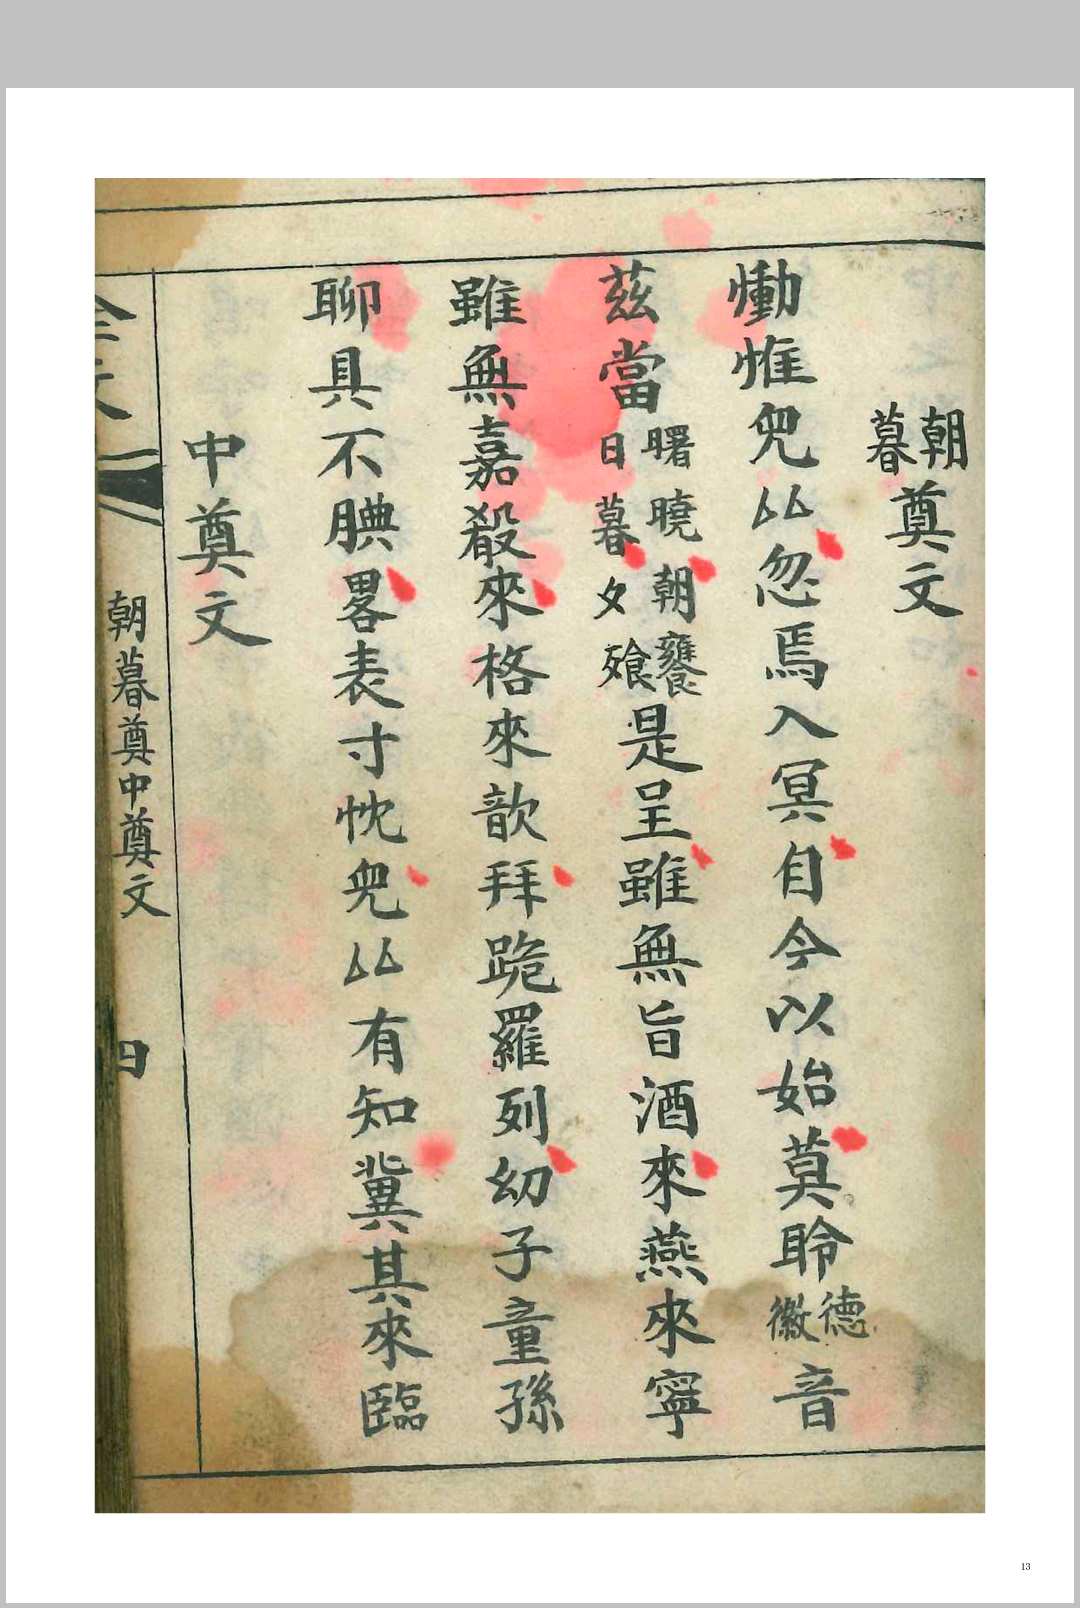 朝暮奠文
慟惟𠒇厸忽焉入冥自今以始莫聆德徽音
茲當曙曉朝饔日暮夕飱是呈雖無旨酒來燕來寧
雖無嘉殽來格來歆拜跪羅列幼子童孫
聊具不腆畧表寸忱𠒇厸有知冀其來臨
中奠文
朝暮奠中奠文
四
13